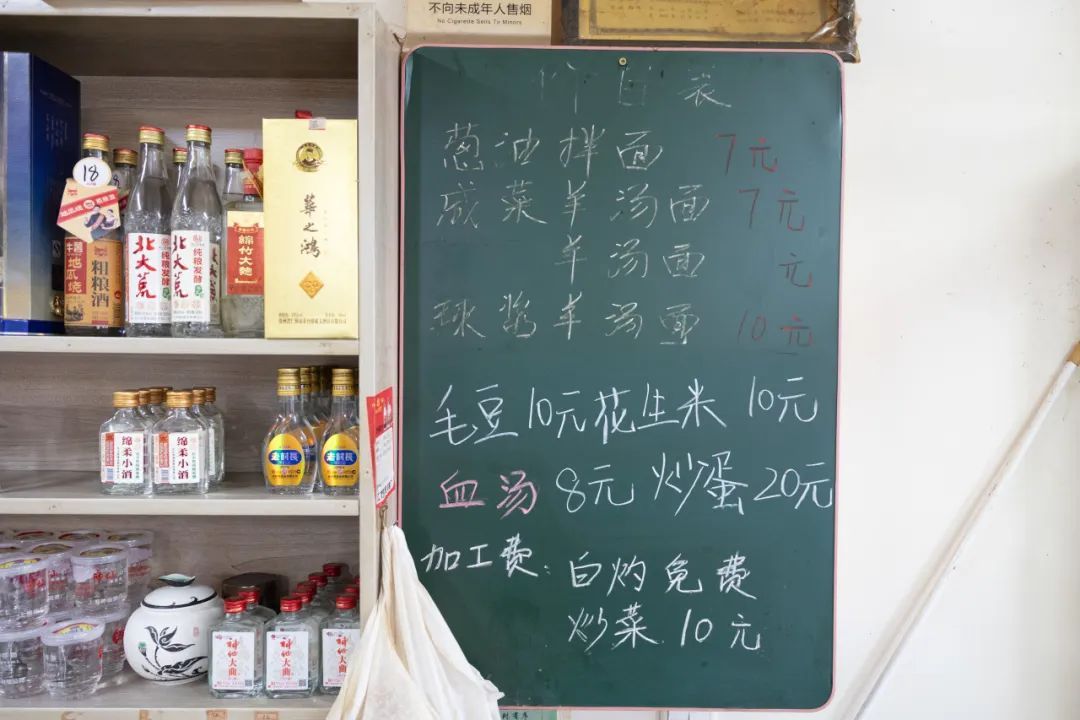 不向未成年人售烟
No Cigarette Sells To Minors
价目表
葱油拌面 7元
咸菜羊汤面 7元
羊汤面 元
球浆羊汤面 10元
毛豆 10元 花生米 10元
血汤 8元 炒蛋 20元
加工费: 白灼免费
炒菜 10元
18
地瓜烧
粗粮酒
北大荒
纯粮发酵
北大荒
纯粮发酵
綿竹大麯
華之鴻
绵柔小酒
绵柔小酒
神仙大曲
神仙大曲